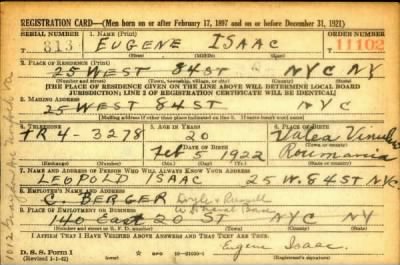 REGISTRATION CARD—(Men born on or after February 17, 1897 and on or before December 31, 1921)
SERIAL NUMBER 1. NAME (Print) ORDER NUMBER
T 813 EUGENE ISAAC 11102
(First) (Middle) (Last)
2. PLACE OF RESIDENCE (Print)
25 WEST 84 ST NYC NY
(Number and street) (Town, township, village, or city) (County) (State)
[THE PLACE OF RESIDENCE GIVEN ON THE LINE ABOVE WILL DETERMINE LOCAL BOARD
JURISDICTION; LINE 2 OF REGISTRATION CERTIFICATE WILL BE IDENTICAL]
3. MAILING ADDRESS
25 WEST 84 ST NYC
4. TELEPHONE 5. AGE IN YEARS 6. PLACE OF BIRTH
4-3278 20 Valea
DATE OF BIRTH
Feb 5 1922 Roumania
(Exchange) (Number) (Mo.) (Day) (Yr.) (State or country)
7. NAME AND ADDRESS OF PERSON WHO WILL ALWAYS KNOW YOUR ADDRESS
LEOPOLD ISAAC 25 W. 84 ST NYC.
8. EMPLOYER'S NAME AND ADDRESS
C. BERGER
9. PLACE OF EMPLOYMENT OR BUSINESS
140 East 20 ST NYC NY
(Number and street or R. F. D. number) (Town) (County) (State)
I AFFIRM THAT I HAVE VERIFIED ABOVE ANSWERS AND THAT THEY ARE TRUE.
D. S. S. Form 1 Eugene Isaac.
(Revised 1-1-42) GPO 16-21630-1 (Registrant's signature)